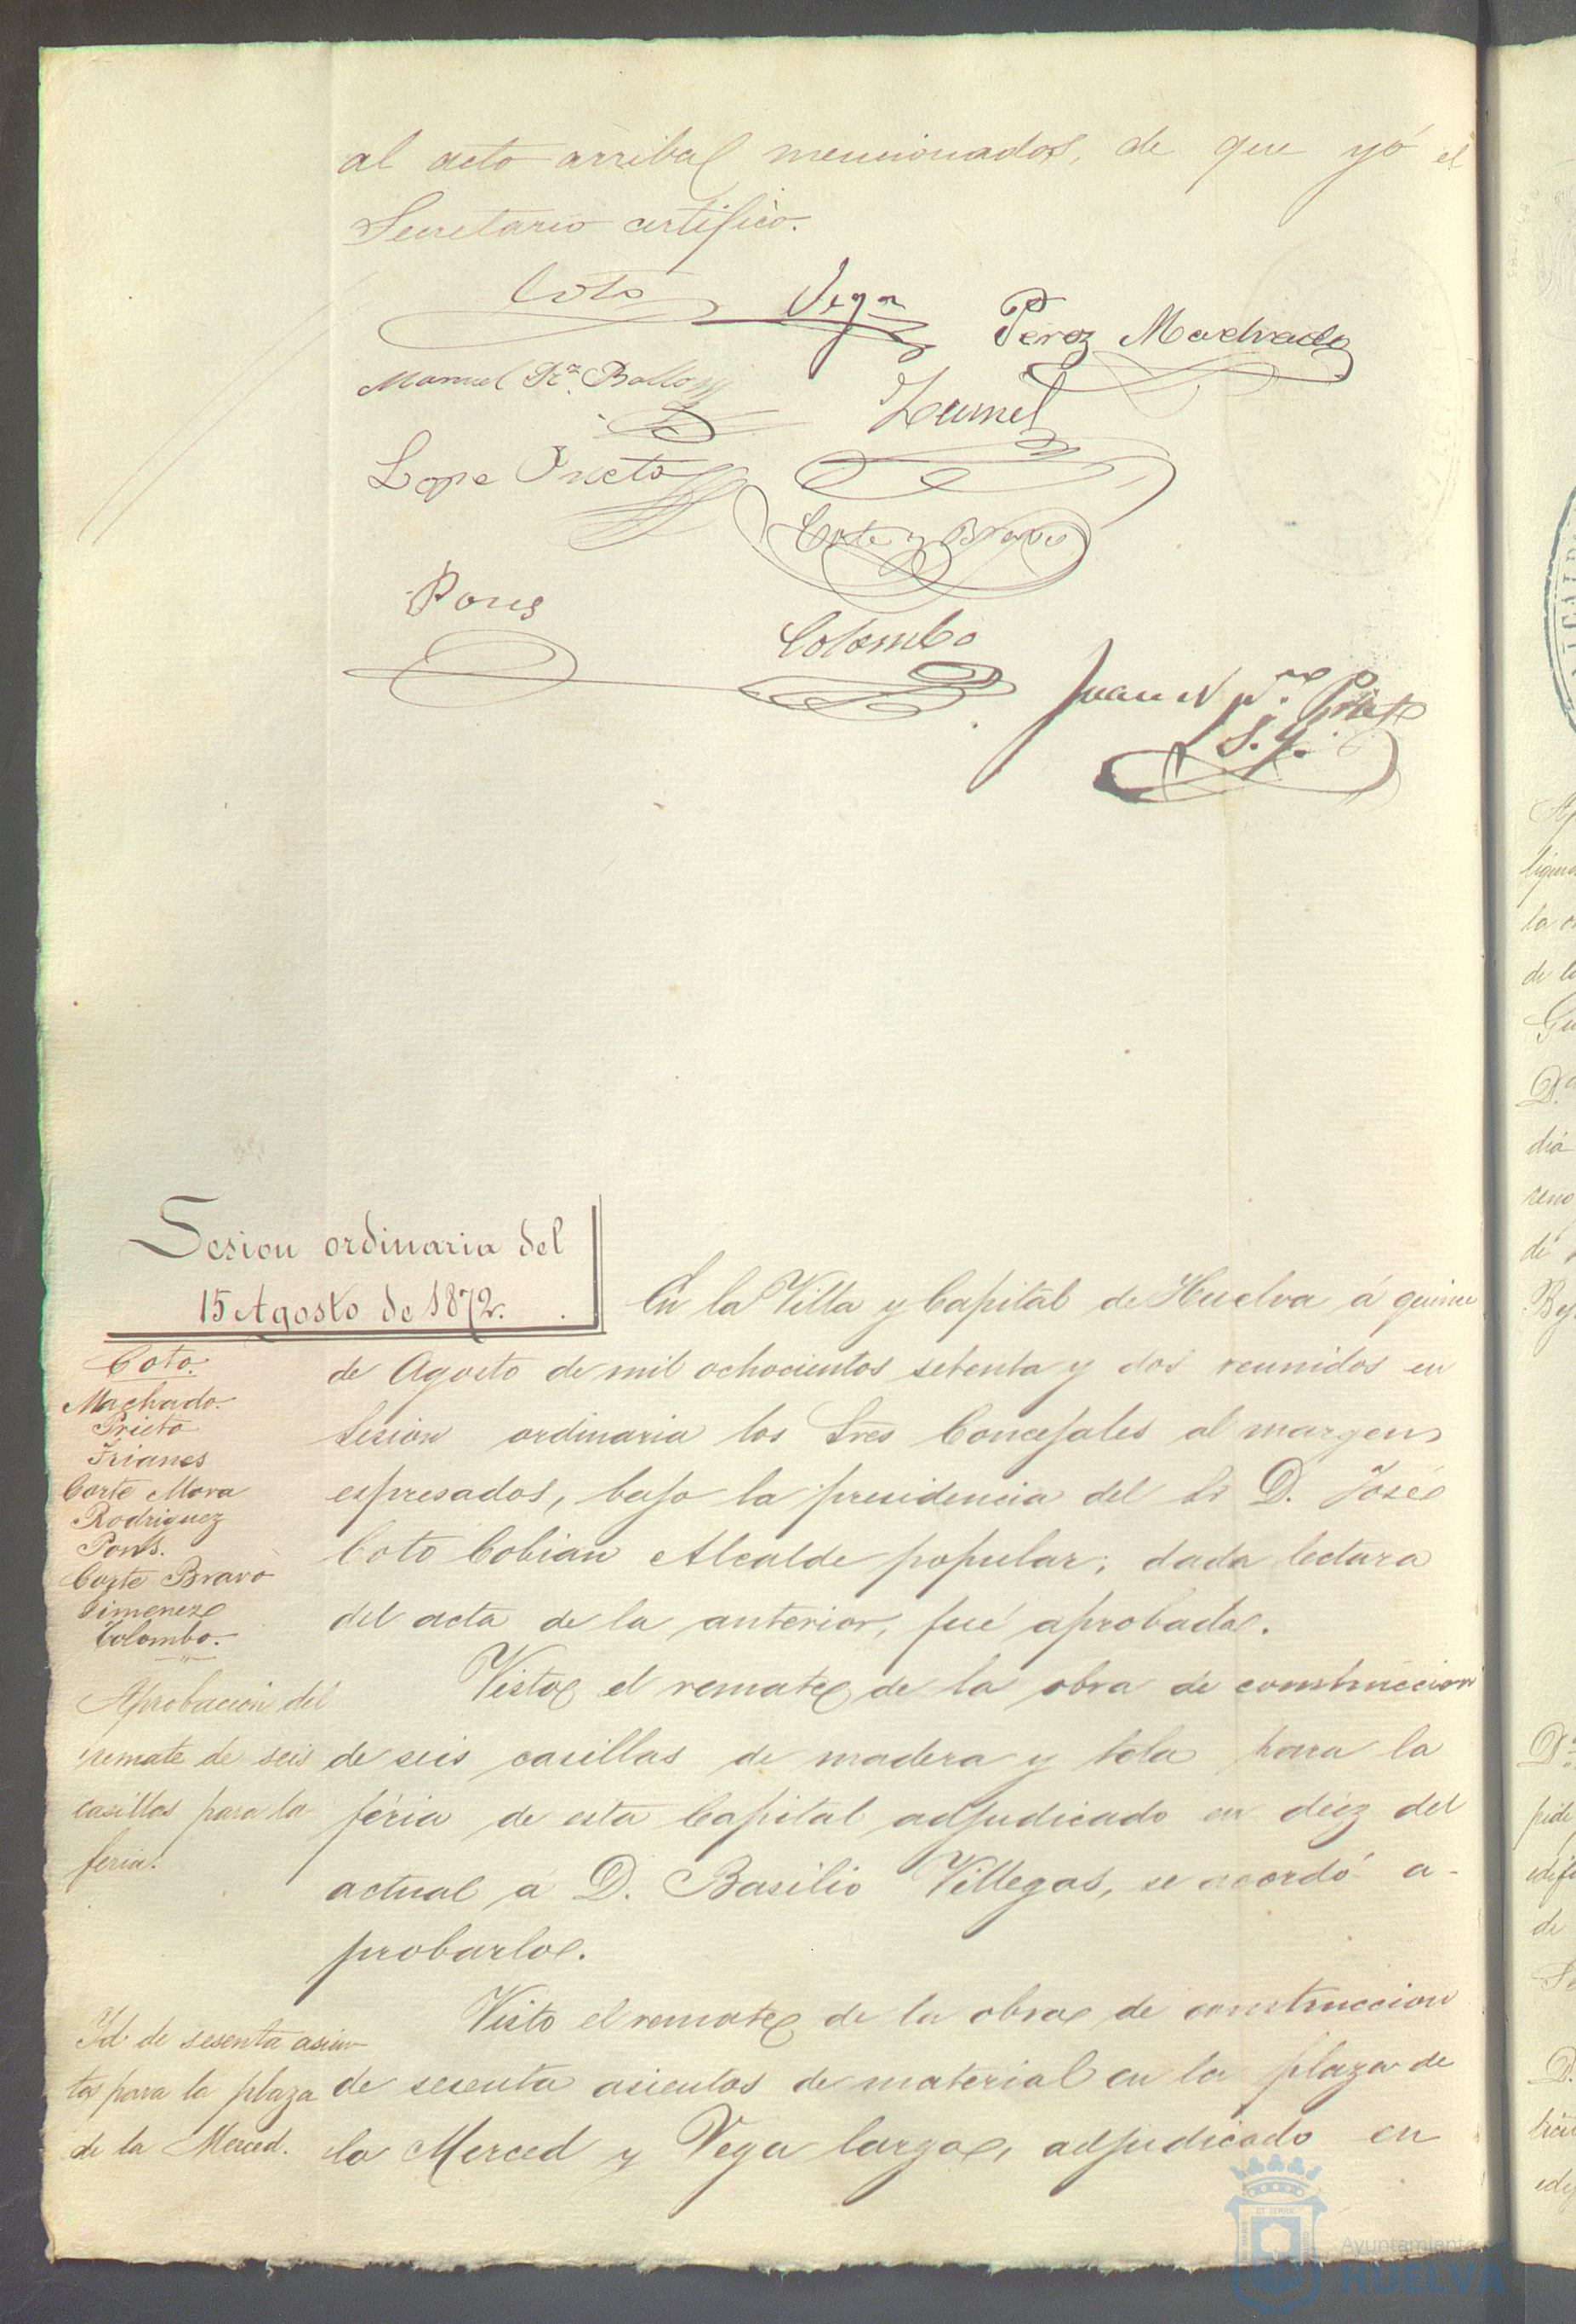 al acto arriba mencionados, de que yó el
Secretario certifico.
Coto Vega Perez Machado
Manuel Rz. Ballo
Lope Prieto
Corte y Bravo
Pons
Colombo
Juan N
S. Y.
Sesion ordinaria del
15 Agosto de 1872.
Coto.
Machado.
Prieto
Trianes
Corte Mora
Rodriguez
Pons.
Corte Bravo
Jimenez
Colombo.
Aprobacion del
remate de seis
casillas para la
feria.
Yd. de sesenta asien
tos para la plaza
de la Merced.
En la Villa y Capital de Huelva á quince
de Agosto de mil ochocientos setenta y dos reunidos en
sesion ordinaria los Sres Concejales al margen
espresados, bajo la presidencia del Sr D. José
Coto Cobian Alcalde popular; dada lectura
del acta de la anterior, fué aprobada.
Visto el remate de la obra de construccion
de seis casillas de madera y tela para la
féria de esta Capital adjudicado en diez del
actual á D. Basilio Villegas, se acordó a-
probarlo.
Visto el remate de la obra de construccion
de sesenta asientos de material en la plaza de
la Merced y Vega larga, adjudicado en
Ayuntamiento
HUELVA